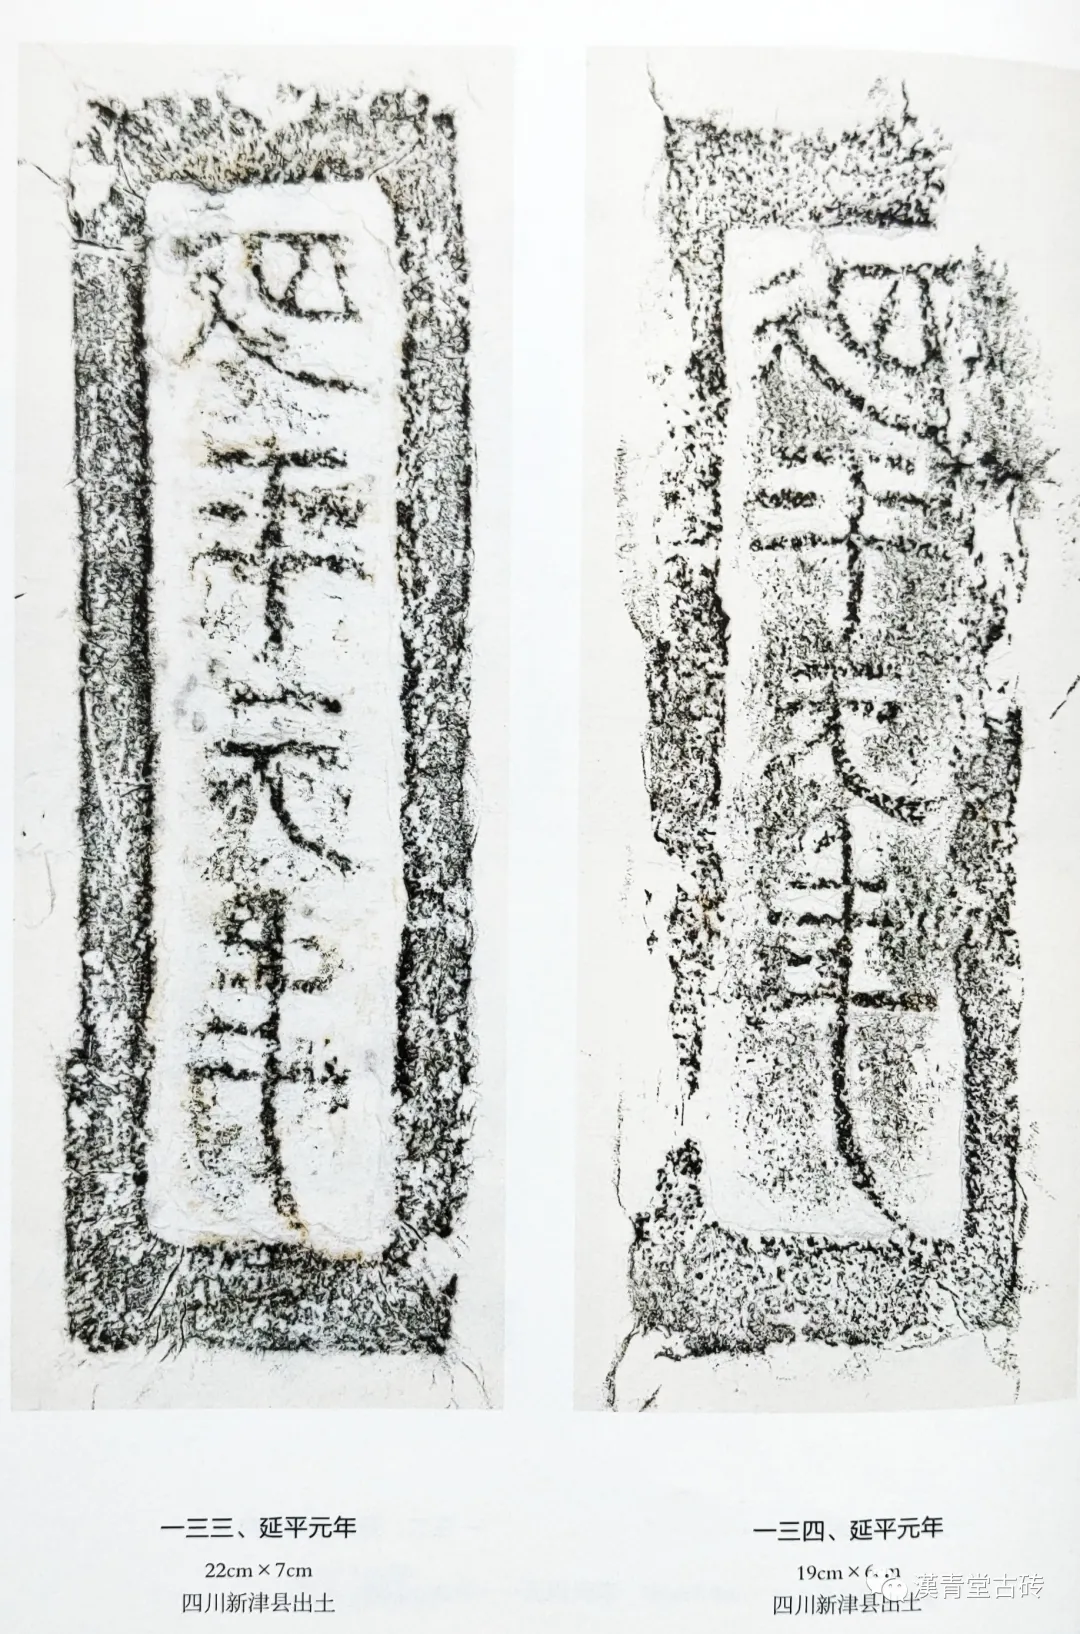 延平元年
延平元年
一三三、延平元年
22cm×7cm
四川新津县出土
一三四、延平元年
19cm×6cm
四川新津县出土
漢青堂古砖